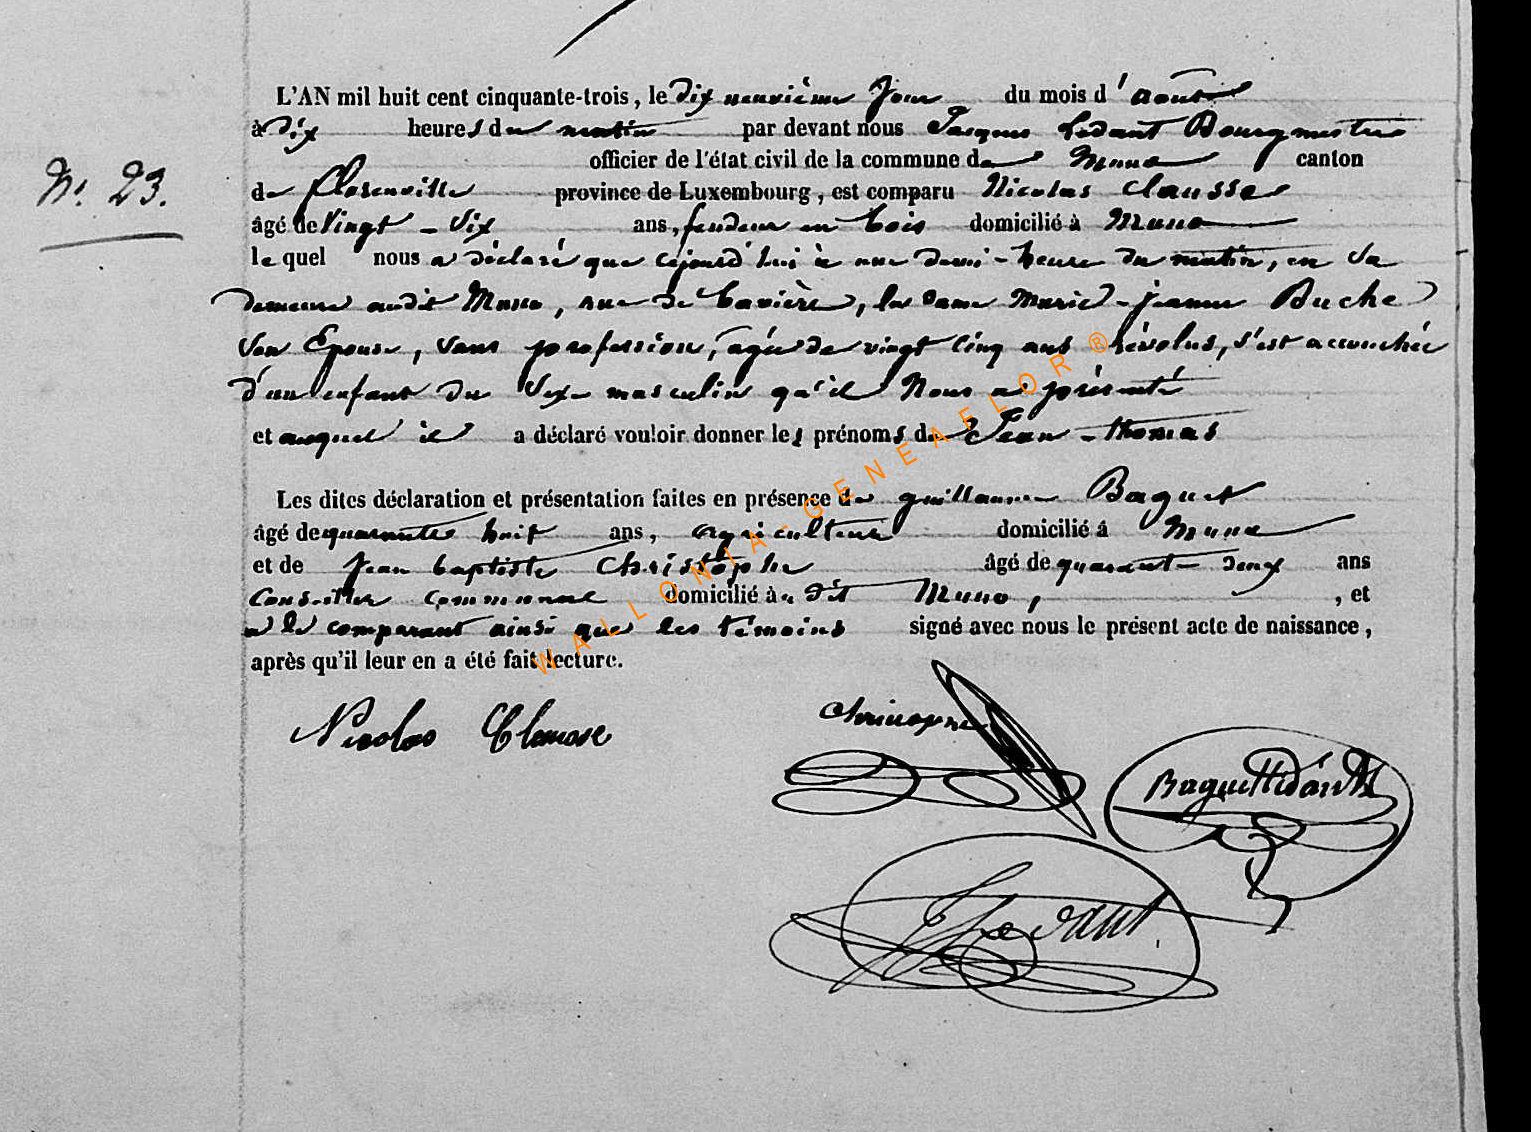 L'AN mil huit cent cinquante-trois, le dix neuvième Jour du mois d'août
à Dix heures du matin par devant nous Jacques Lédant Bourgmestre
officier de l'état civil de la commune de Muno canton
N° 23.
de florenville province de Luxembourg, est comparu Nicolas Clausse
âgé de Vingt-Six ans, fendeur en bois domicilié à Muno
le quel nous a déclaré que cejourd'hui à une demi-heure du matin, en Sa
demeure audit Muno, rue de bavière, la dame Marie-jeanne Buche
Son Epouse, Sans profession, agée de vingt Cinq ans révolus, s'est accouchée
d'un enfant du Sexe masculin qu'il Nous a présenté
et auquel il a déclaré vouloir donner les prénoms de Jean-thomas
Les dites déclaration et présentation faites en présence de guillaume Baguet
âgé de quarante huit ans, agriculteur domicilié à Muno
et de Jean baptiste Christophe âgé de quarant-deux ans
Conseiller communal domicilié à dit Muno, , et
a le comparant ainsi que les témoins signé avec nous le présent acte de naissance,
après qu'il leur en a été fait lecture.
WALLONIA-GENEAFLOR®
Nicolas Clausse
Christophe
Baguet
Lédant